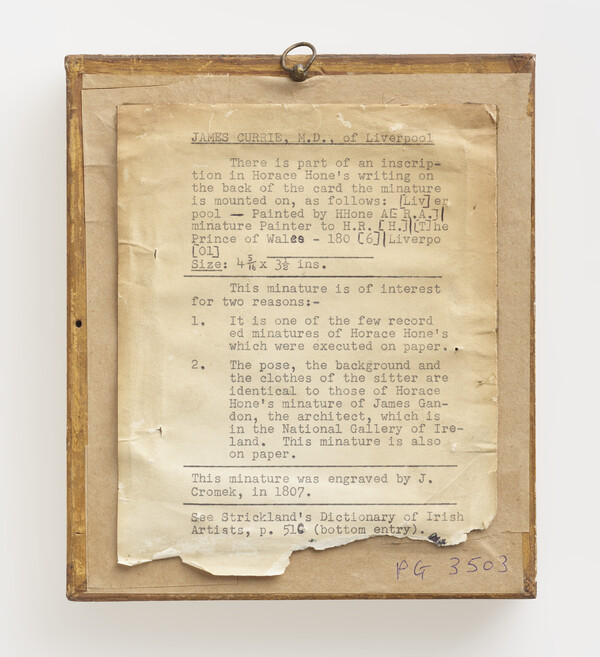 JAMES CURRIE, M.D., of Liverpool
There is part of an inscrip-
tion in Horace Hone's writing on
the back of the card the minature
is mounted on, as follows: [Liv]er
pool — Painted by HHone A[R.A.]|
minature Painter to H.R.[H.]|[T]he
Prince of Wales - 180[6]|Liverpo
[Ol]
Size: 4 5/16 x 3 1/2 ins.
This minature is of interest
for two reasons:-
1. It is one of the few record
ed minatures of Horace Hone's
which were executed on paper.
2. The pose, the background and
the clothes of the sitter are
identical to those of Horace
Hone's minature of James Gan-
don, the architect, which is
in the National Gallery of Ire-
land. This minature is also
on paper.
This minature was engraved by J.
Cromek, in 1807.
See Strickland's Dictionary of Irish
Artists, p. 510 (bottom entry).
PG 3503